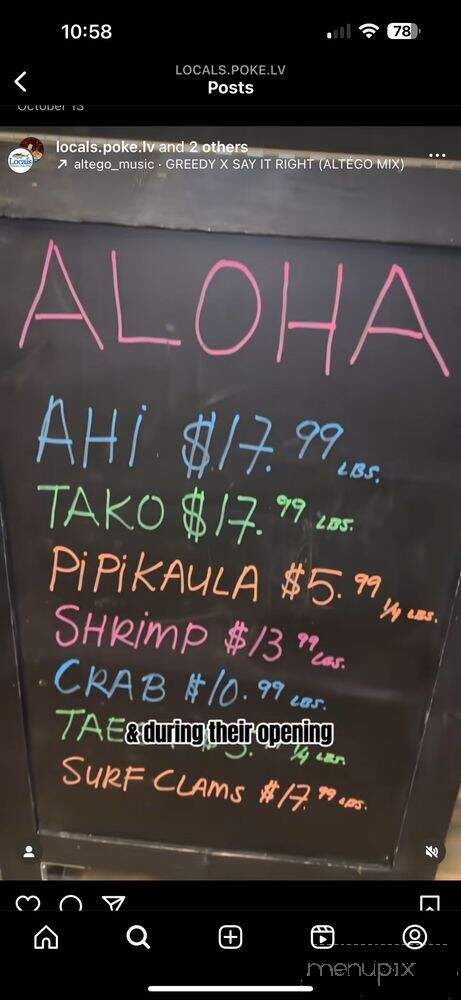 10:58
78
LOCALS.POKE.LV
Posts
October 13
Locals
locals.poke.lv and 2 others
altego_music · GREEDY X SAY IT RIGHT (ALTÉGO MIX)
ALOHA
AHi $17.99 LBS.
TAKO $17.99 LBS.
PiPiKAULA $5.99 1/4 LBS.
SHRimP $13.99 LBS.
CRAB $10.99 LBS.
TAE
& during their opening
1/4 LBS.
SURF CLAMS $17.99 LBS.
menupix